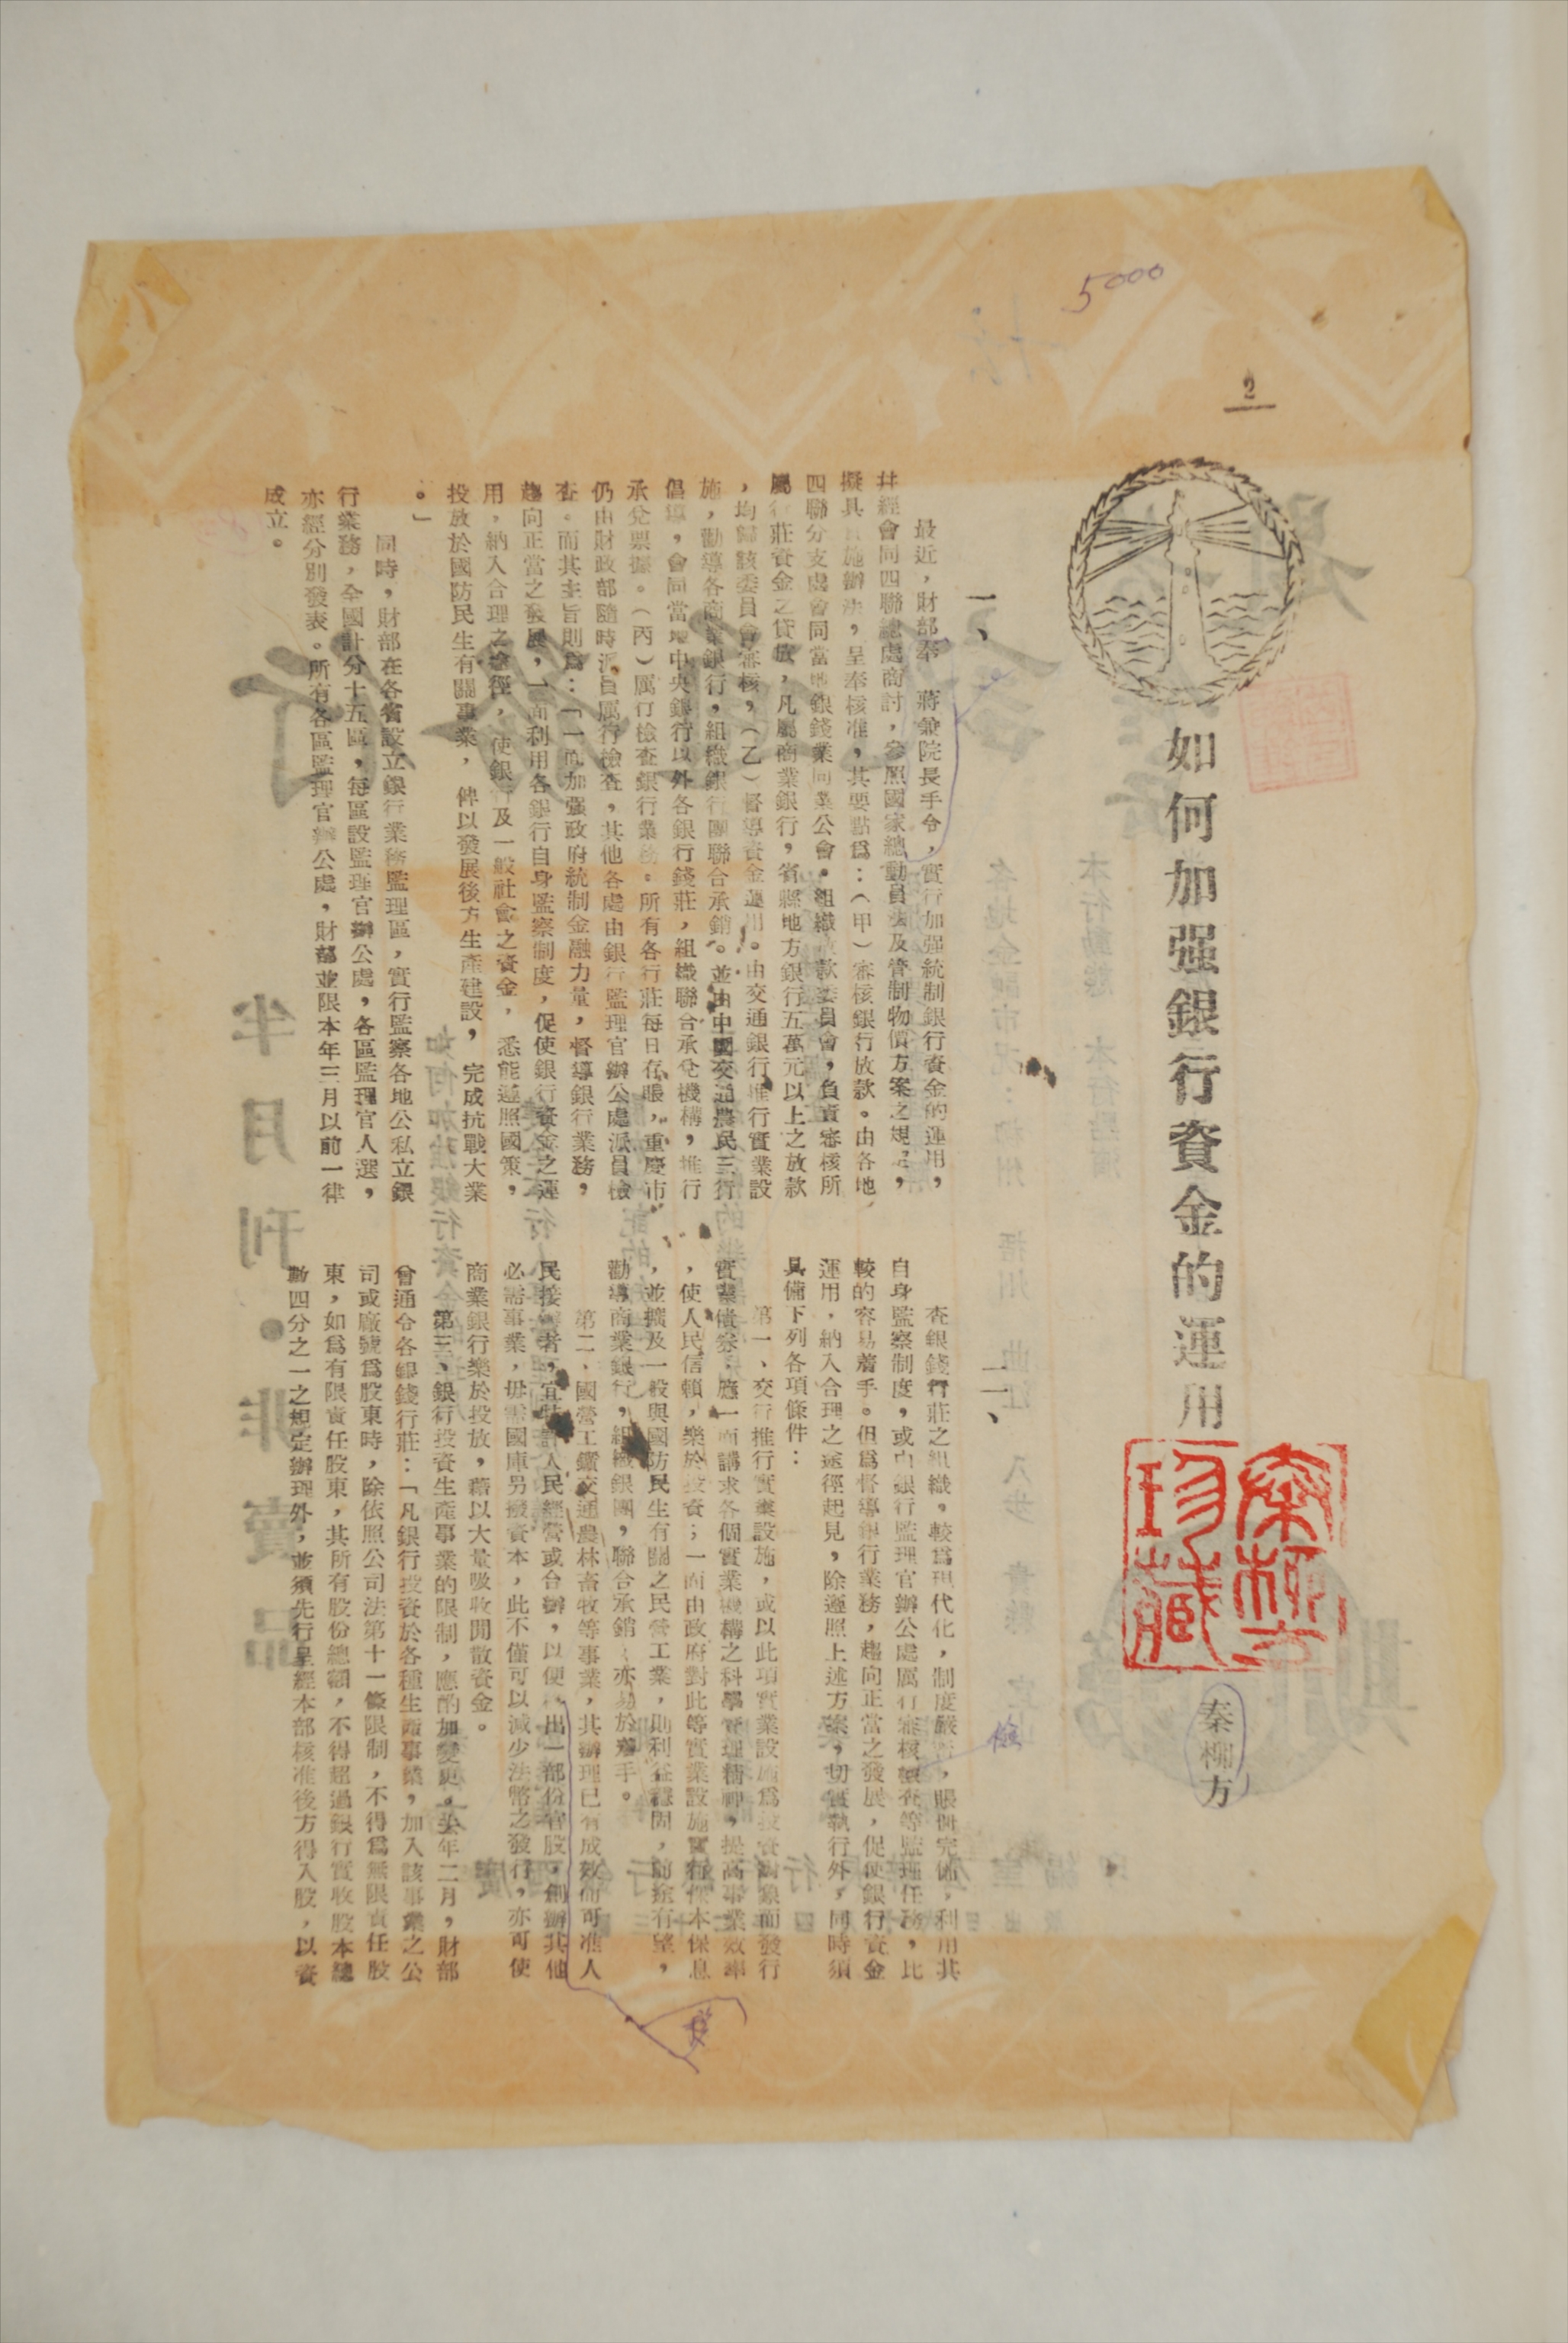 5000
2
如何加强銀行資金的運用
秦柳方
秦柳方
珍藏
一、
最近，財部奉　蔣兼院長手令，實行加强統制銀行資金的運用，
幷經會同四聯總處商討，參照國家總動員法及管制物價方案之規定，
擬具實施辦法，呈奉核准，其要點爲：（甲）審核銀行放款。由各地
四聯分支處會同當地銀錢業同業公會。組織放款委員會，負責審核所
屬行莊資金之貸放，凡屬商業銀行，省縣地方銀行五萬元以上之放款
，均歸該委員會審核，（乙）督導資金運用。由交通銀行推行實業設
施，勸導各商業銀行，組織銀行團聯合承銷。並由中國交通農民三行
倡導，會同當地中央銀行以外各銀行錢莊，組織聯合承兌機構，推行
承兌票據。（丙）厲行檢查銀行業務。所有各行莊每日存賬，重慶市
仍由財政部隨時派員厲行檢查，其他各處由銀行監理官辦公處派員檢
查。而其主旨則爲：「一面加强政府統制金融力量，督導銀行業務，
趨向正當之發展，一面利用各銀行自身監察制度，促使銀行資金之運
用，納入合理之途徑，使銀行及一般社會之資金，悉能遵照國策，
投放於國防民生有關事業，俾以發展後方生產建設，完成抗戰大業
。」
同時，財部在各省設立銀行業務監理區，實行監察各地公私立銀
行業務，全國計分十五區，每區設監理官辦公處，各區監理官人選，
亦經分別發表。所有各區監理官辦公處，財部並限本年三月以前一律
成立。
二、
查銀錢行莊之組織，較爲現代化，制度嚴密，賬冊完備，利用其
自身監察制度，或由銀行監理官辦公處厲行審核檢查等監理任務，比
較的容易着手。但爲督導銀行業務，趨向正當之發展，促使銀行資金
運用，納入合理之途徑起見，除遵照上述方案，切實執行外，同時須
具備下列各項條件：
第一、交行推行實業設施，或以此項實業設施爲投資對象而發行
實業債券，應一面講求各個實業機構之科學管理精神，提高事業效率
，使人民信賴，樂於投資；一面由政府對此等實業設施實行保本保息
，並擴及一般與國防民生有關之民營工業，則利益穩固，前途有望，
勸導商業銀行，組織銀團，聯合承銷，亦易於着手。
第二、國營工鑛交通農林畜牧等事業，其辦理已有成效而可准人
民接辦者，宜特許人民經營或合辦，以便出一部份官股，創辦其他
必需事業，毋需國庫另撥資本，此不僅可以減少法幣之發行，亦可使
商業銀行樂於投放，藉以大量吸收閒散資金。
第三、銀行投資生產事業的限制，應酌加變更。去年二月，財部
曾通令各銀錢行莊：「凡銀行投資於各種生產事業，加入該事業之公
司或廠號爲股東時，除依照公司法第十一條限制，不得爲無限責任股
東，如爲有限責任股東，其所有股份總額，不得超過銀行實收股本總
數四分之一之規定辦理外，並須先行呈經本部核准後方得入股，以資